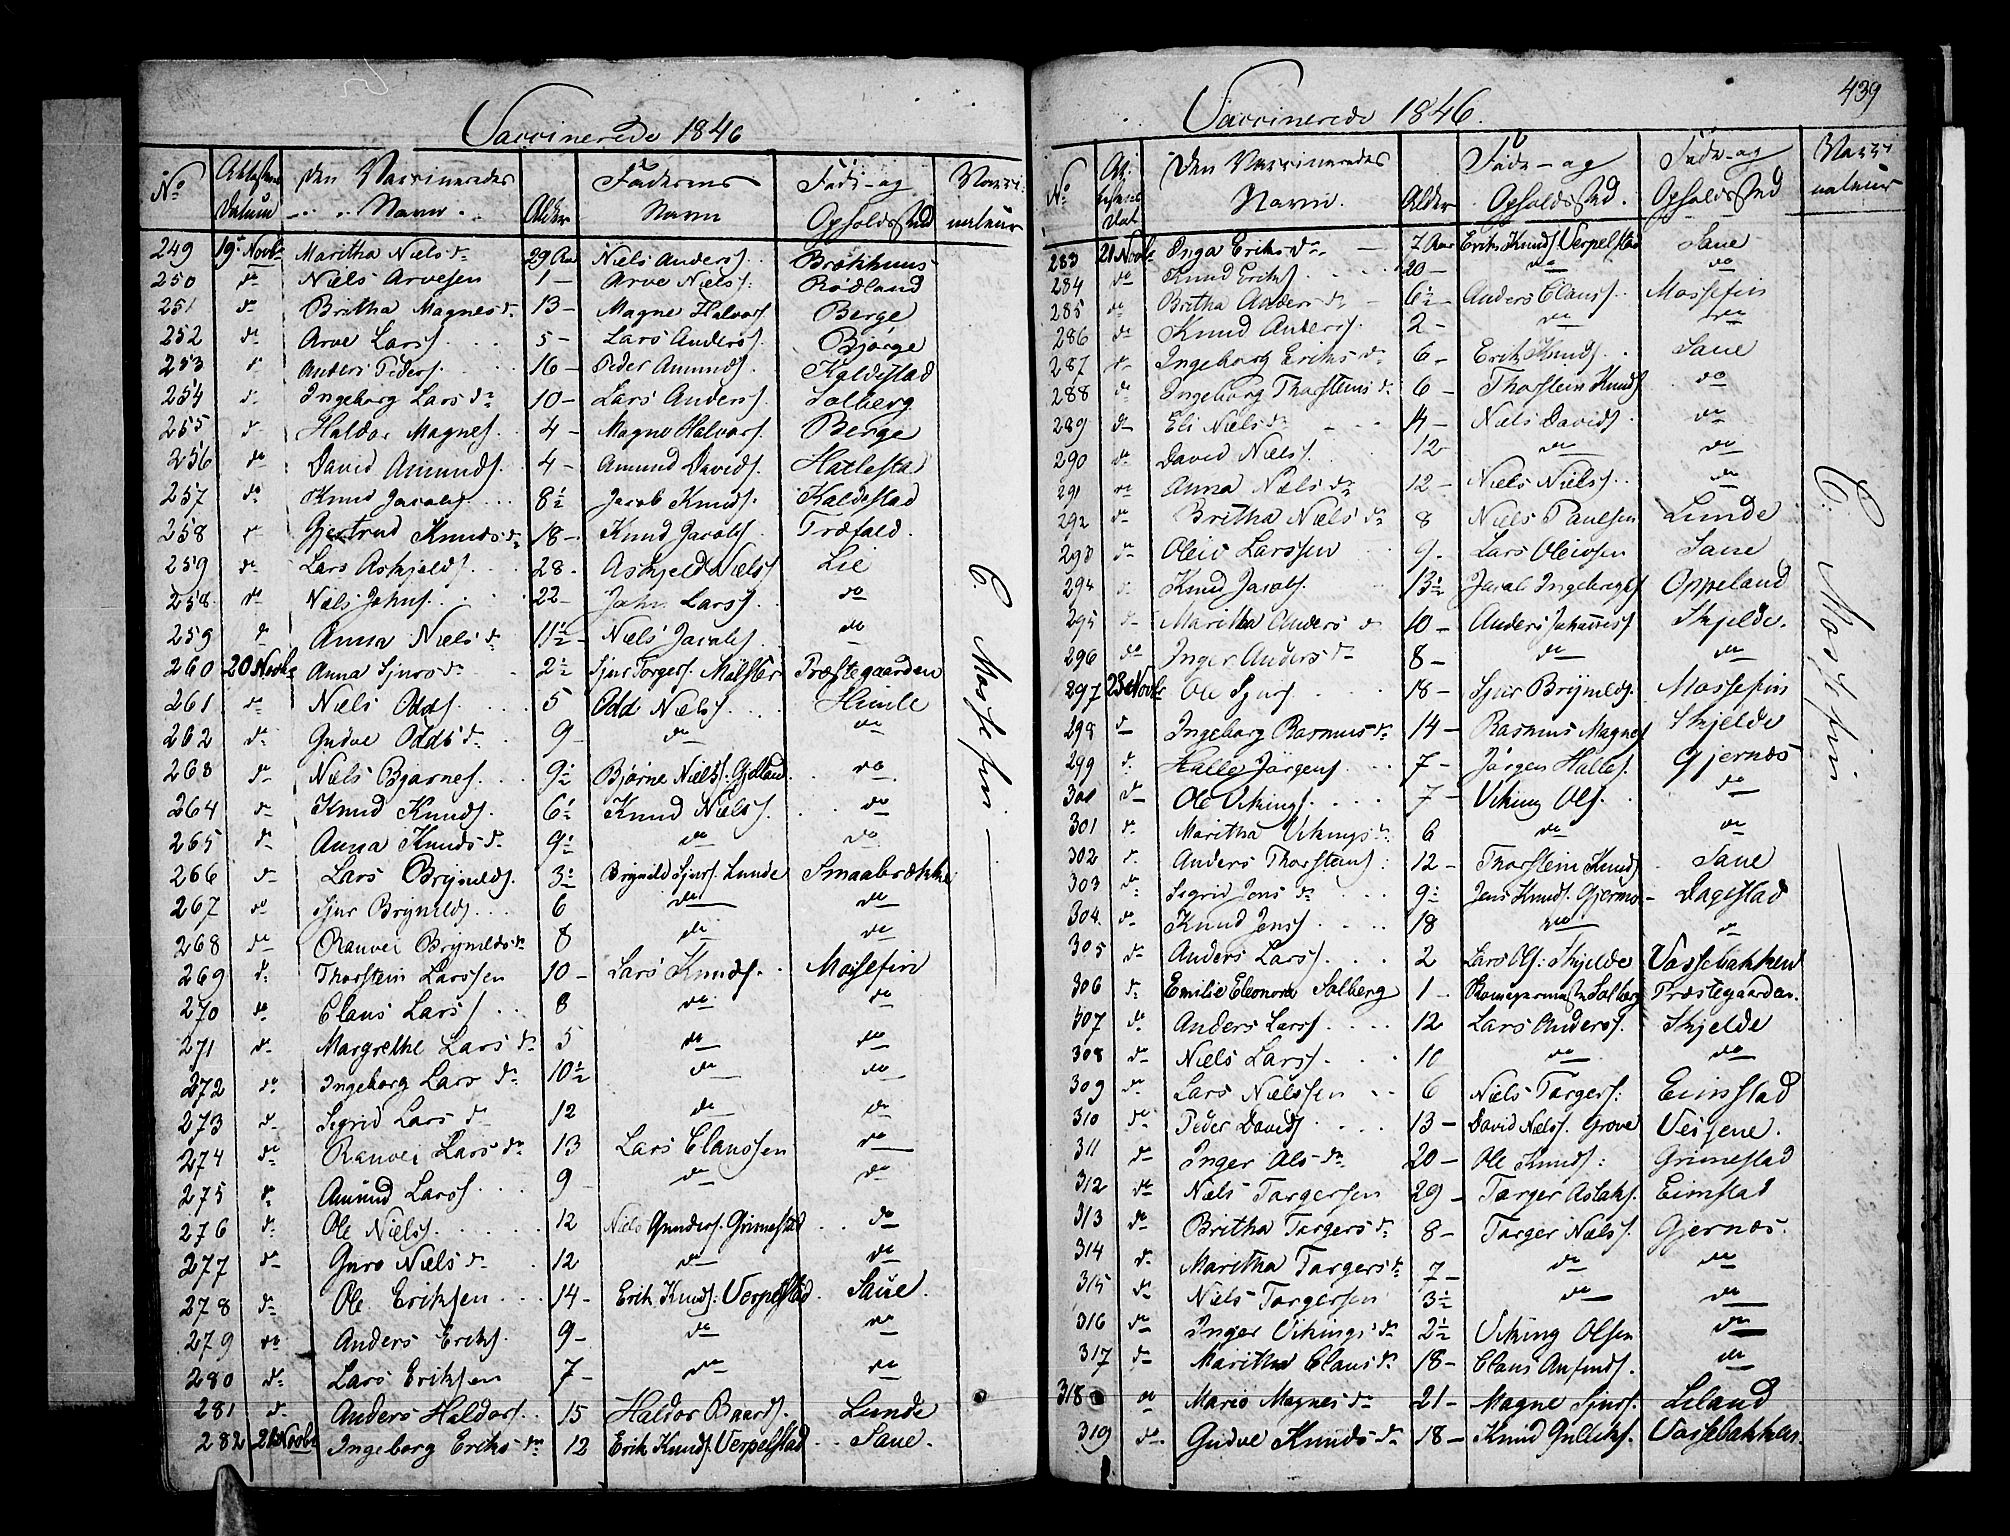 Vaccinerede 1846
No Attestens Datum Den Vaccineredes Navn Alder Faderens Navn Føde- og Opholdssted Vacci- nateur
249 19de Novbr Maritha Niels dr 29 Aar Niels Anders. Brækhuus
250 do Niels Arvesen 1 - Arve Niels. Rødland
251 do Britha Magnes dr 13 - Magne Halvors. Berge
252 do Arve Lars. 5 - Lars Anders. Bjørge
253 do Anders Peders. 16 - Peder Amunds. Kaldestad
254 do Ingeborg Lars dr 10 - Lars Anders. Solberg
255 do Haldor Magnes. 4 - Magne Halvors. Berge
256 do David Amunds. 4 - Amund Davids. Hatlestad
257 do Knud Jacobs. 8½ Jacob Knuds. Kaldestad
258 do Gjertrud Knuds dr 18 - Knud Jacobs. Træfald.
259 do Lars Askjelds. 28 - Askjeld Niels. Lie
258 do Niels Johns. 22 - John Lars. do
259 do Anna Niels dr 11½ - Niels Jacobs. do
260 20 Novbr Anna Sjurs dr 2½ Sjur Torgers. Mølster Præstegaarden
261 do Niels Odds. 5 Odd Niels. Himle
262 do Gudve Odds dr 9 - do do
263 do Niels Bjørnes. 9½ Bjørne Niels. Gjelland do
264 do Knud Knuds. 6½ Knud Niels. do
265 do Anna Knuds dr 9½ do do
266 do Lars Brynilds. 3½ Brynild Sjurs. Lunde Smaabrække
267 do Sjur Brynilds. 6 do do
268 do Ranvei Brynilds dr 8 do do
269 do Thorstein Larssen 10 - Lars Knuds. Mossefin
270 do Claus Lars. 8 do do
271 do Margrethe Lars dr 5 do do
272 do Ingeborg Lars dr 10½ do do
273 do Sigrid Lars dr 12 do do
274 do Ranvei Lars dr 13 Lars Claussen do
275 do Amund Lars. 9 - do do
276 do Ole Niels. 12 Niels Gunders. Grimestad do
277 do Guro Niels dr 12 do do
278 do Ole Eriksen 14 - Erik Knuds. Verpelstad Saue.
279 do Anders Eriks. 9 - do do
280 do Lars Eriksen 7 - do do
281 do Anders Haldors. 15 Haldor Baards. Lunde
282 21 Novbr Ingeborg Eriks dr 12 Erik Knuds. Verpelstad Saue.
C. Mossefin
439
Vaccinerede 1846.
No Den Vaccineredes Navn. Alder Føde- og Opholdssted. Føde- og Opholdssted Vacci- nateur
283 21 Novbr Inga Eriks dr 7 Aar Erik Knuds. Verpelstad Saue
284 do Knud Eriks. 20 - do do
285 do Britha Anders dr 6½ - Anders Claus. Mossefin
286 do Knud Anders. 2 - do do
287 do Ingeborg Eriks dr 6 - Erik Knuds. Saue
288 do Ingeborg Thorsteins dr 6 - Thorstein Knuds. do
289 do Eli Niels dr 4 - Niels Davids. do
290 do David Niels. 12 do do
291 do Anna Niels dr 12 - Niels Niels. do
292 do Britha Niels dr 8 Niels Paulsen Lunde
293 do Oleiv Larssen 9 - Lars Oleivsen Saue
294 do Knud Jacobs. 13½ Jacob Ingebrigts. Oppeland
295 do Maritha Anders dr 10 - Anders Johannes. Skjelde.
296 do Inger Anders dr 8 - do do
297 23 Novbr Ole Sjurs. 18 - Sjur Brynilds. Mossefin
298 do Ingeborg Rasmus dr 14 - Rasmus Magnes. Skjelde
299 do Halle Jørgens. 7 - Jørgen Halles. Gjernes
300 do Ole Vikings. 7 - Viking Ols. do
301 do Maritha Vikings dr 6 do do
302 do Anders Thorsteins. 12 - Thorstein Knuds. Saue
303 do Sigrid Jens dr 9½ Jens Knuds. Gjermo Dagestad
304 do Knud Jens. 18 do do
305 do Anders Lars. 2 Lars Ols. Skjelde Vossebakken
306 do Emilie Eleonora Solberg 1 - Solberg Præstegaarden.
307 do Anders Lars. 12 Lars Anders. Skjelde
308 do Niels Lars. 10 do do
309 do Lars Nielssen 6 Niels Torgers. Eimstad
310 do Peder Davids. 13 - David Niels. Grove Veisene.
311 do Inger Ols dr 20 - Ole Knuds. Grimestad
312 do Niels Torgersen 29 - Torger Aslaks. Eimstad
313 do Britha Torgers dr 8 - Torger Niels. Gjernes.
314 do Maritha Torgers dr 7 - do do
315 do Niels Torgersen 3½ do do
316 do Inger Vikings dr 2½ Viking Olsen do
317 do Maritha Claus dr 18 - Claus Anfinds. do
318 do Mario Magnes dr 21 - Magne Sjurs. Leland
319 do Gudve Knuds dr 18 - Knud Gulleks. Vossebakken.
C. Mossefin